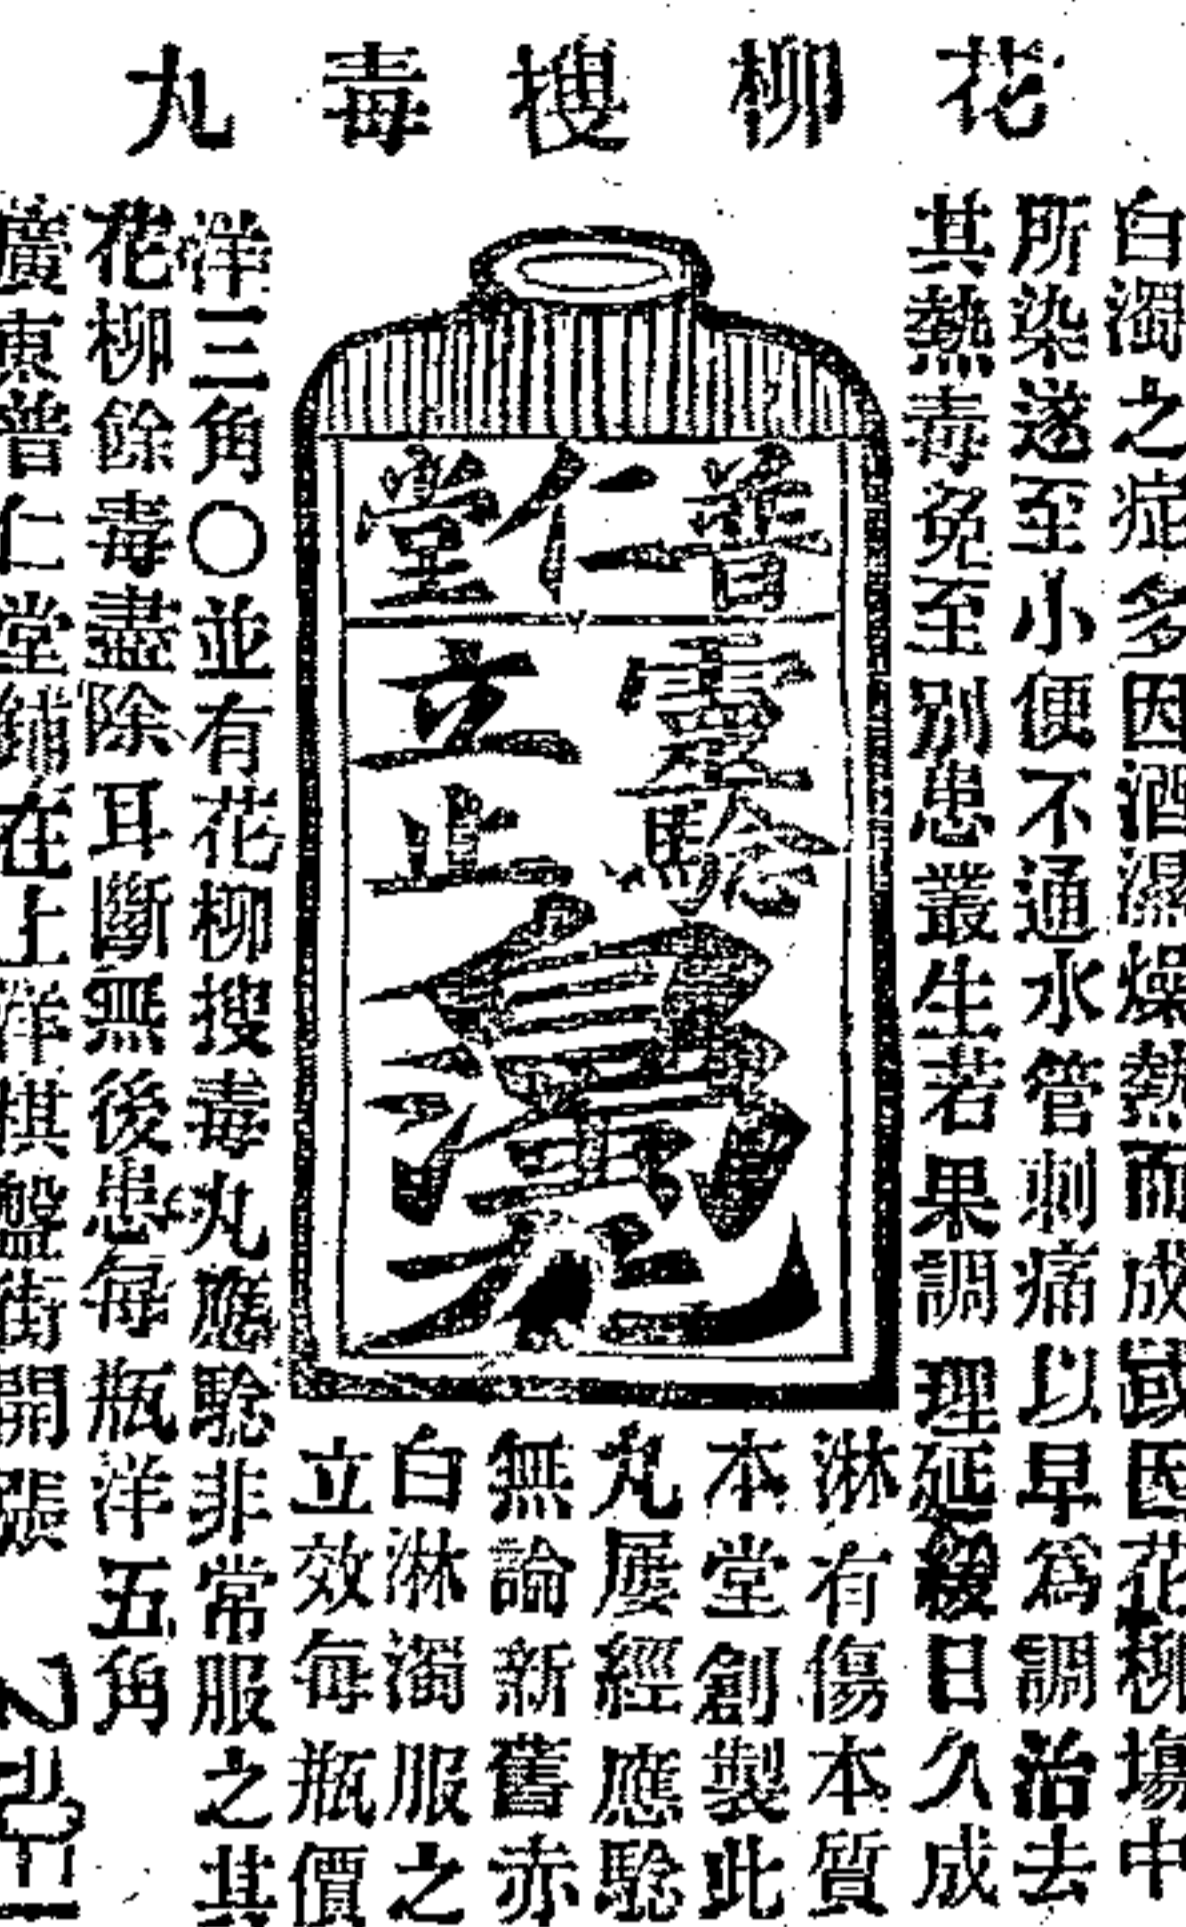 花柳搜毒丸
白濁之症多因酒濕燥熱而成或因花柳塲中
所染遂至小便不通水管刺痛以早爲調治去
其熱毒免至別患叢生若果調理延緩日久成
淋有傷本質
本堂創製此
丸屢經應騐
無論新舊赤
白淋濁服之
立效每瓶價
普仁堂
靈騐
立止
白濁丸
洋三角〇並有花柳搜毒丸應騐非常服之其
花柳餘毒盡除耳斷無後患每瓶洋五角
廣東普仁堂鋪在上洋棋盤街開張